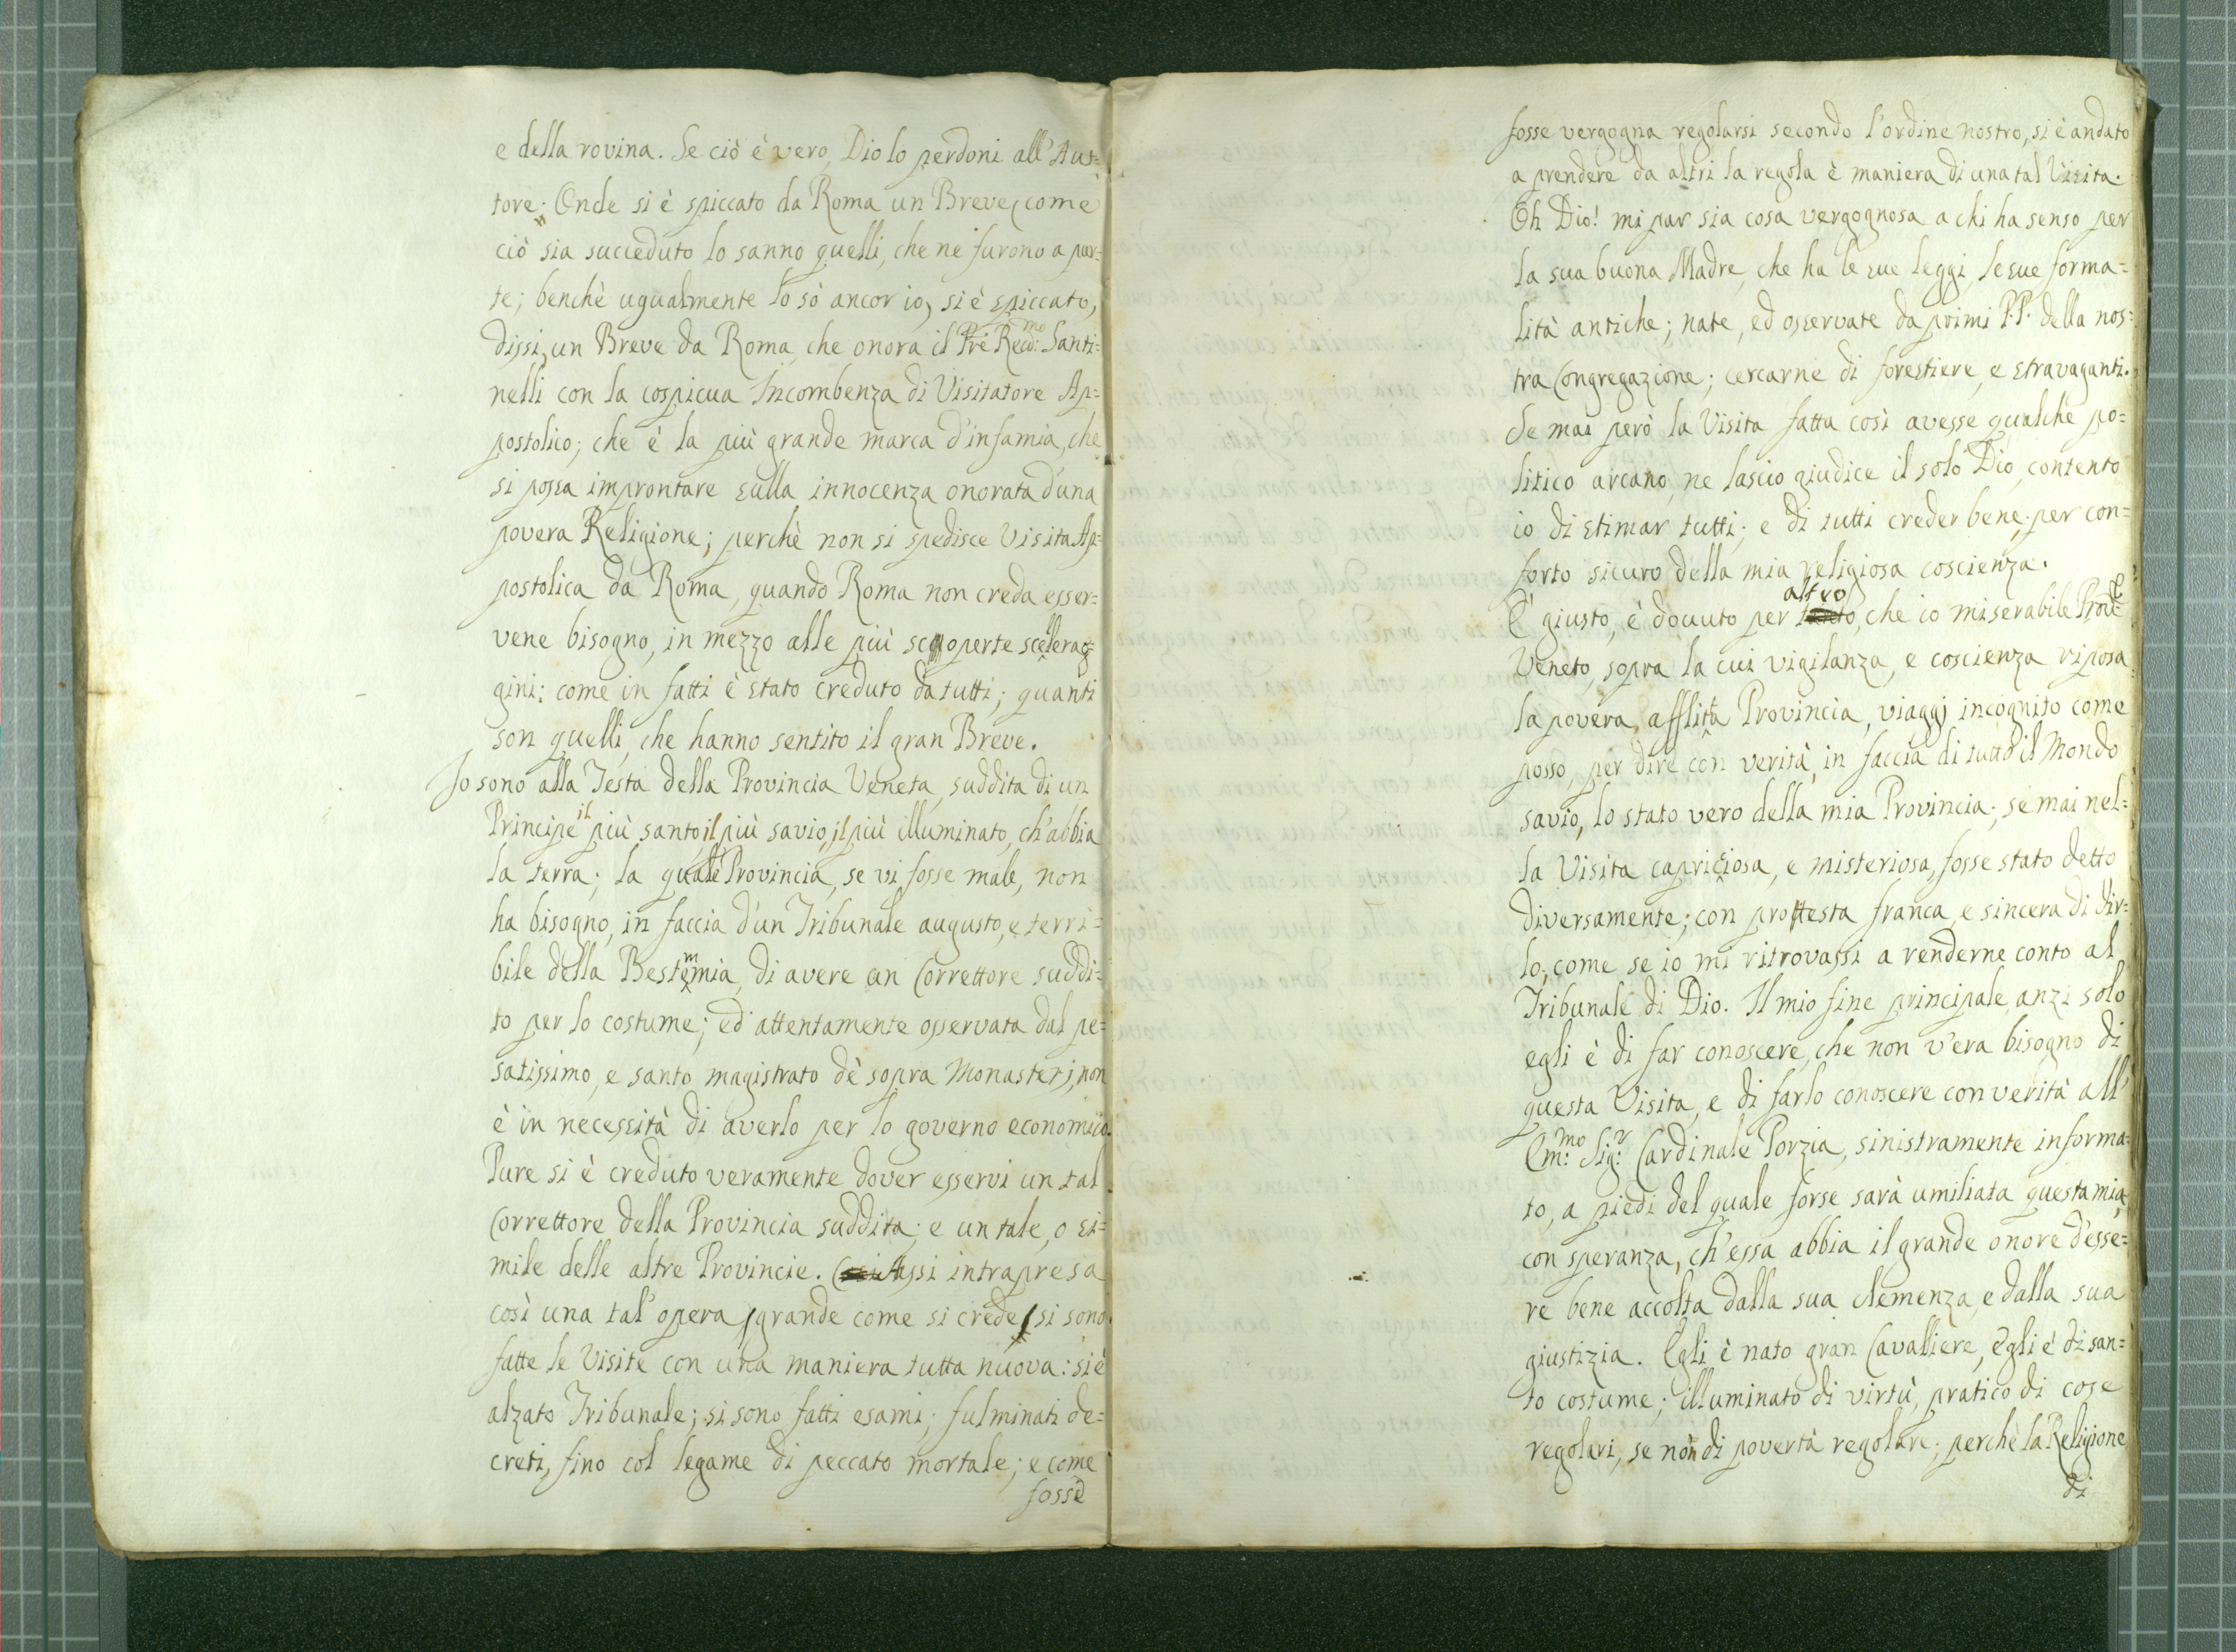 e della rovina. Se ciò è vero, Dio lo perdoni all'Aut=
tore. Onde si è spiccato da Roma un Breve, come
ciò sia succeduto lo sanno quelli, che ne furono a par=
te; benchè ugualmente lo sò ancor io, si è spiccato,
dissi, un Breve da Roma, che onora il Pre Recd:mo Santi=
nelli con la cospicua Incombenza di Visitatore Ap=
postolico; che è la più grande marca d'infamia, che
si possa improntare sulla innocenza onorata d'una
povera Religione; perchè non si spedisce Visita Ap=
postolica da Roma, quando Roma non creda esser=
vene bisogno, in mezzo alle più scoperte scellerag=
gini: come in fatti è stato creduto da tutti; quanti
son quelli, che hanno sentito il gran Breve.
Io sono alla Testa della Provincia Veneta, suddita di un
Principe il più santo, il più savio, il più illuminato, ch'abbia
la terra; la quale Provincia, se vi fosse male, non
ha bisogno, in faccia d'un Tribunale augusto, e terri=
bile della Bestemmia, di avere un Correttore suddi=
to per lo costume; ed attentamente osservata dal pe=
satissimo, e santo magistrato dè sopra Monasterj, non
è in necessità di averlo per lo governo economico.
Pure si è creduto veramente dover esservi un tal
Correttore della Provincia suddita; e un tale, o si=
mile delle altre Provincie. Assi intrapresa
così una tal'opera, grande come si crede, si sono
fatte le Visite con una maniera tutta nuova: si è
alzato Tribunale; si sono fatti esami; fulminati de=
creti, fino col legame di peccato mortale; e come
fosse
fosse vergogna regolarsi secondo l'ordine nostro, si è andato
a prendere da altri la regola è maniera di una tal Visita.
Oh Dio! mi par sia cosa vergognosa a chi ha senso per
la sua buona Madre, che ha le sue leggi, le sue forma=
lità antiche; nate, ed osservate da primi P.P. della nos=
tra Congregazione; cercarne di forestiere, e stravaganti.
Se mai però la Visita fatta così avesse qualche po=
litico arcano, ne lascio giudice il solo Dio, contento
io di stimar tutti; e di tutti creder bene, per con=
forto sicuro della mia religiosa coscienza.
E' giusto, è douuto per altro, che io miserabile Prou:le
Veneto, sopra la cui vigilanza, e coscienza riposa
la povera, afflitta Provincia, viaggj incognito come
posso, per dire con verità, in faccia di tutto il Mondo
savio, lo stato vero della mia Provincia; se mai nel=
la Visita capricciosa, e misteriosa, fosse stato detto
diversamente; con protesta franca, e sincera di dir=
lo, come se io mi ritrovassi a renderne conto al
Tribunale di Dio. Il mio fine principale, anzi solo
egli è di far conoscere, che non v'era bisogno di
questa Visita, e di farlo conoscere con verità all'
Em:mo Sig:r Cardinale Porzia, sinistramente informa=
to, a piedi del quale forse sarà umiliata questa mia,
con speranza, ch'essa abbia il grande onore d'esse=
re bene accolta dalla sua clemenza, e dalla sua
giustizia. Egli è nato gran Cavalliere, Egli è di san=
to costume; illuminato di virtù, pratico di cose
regolari, se non di povertà regolare; perchè la Religione
di